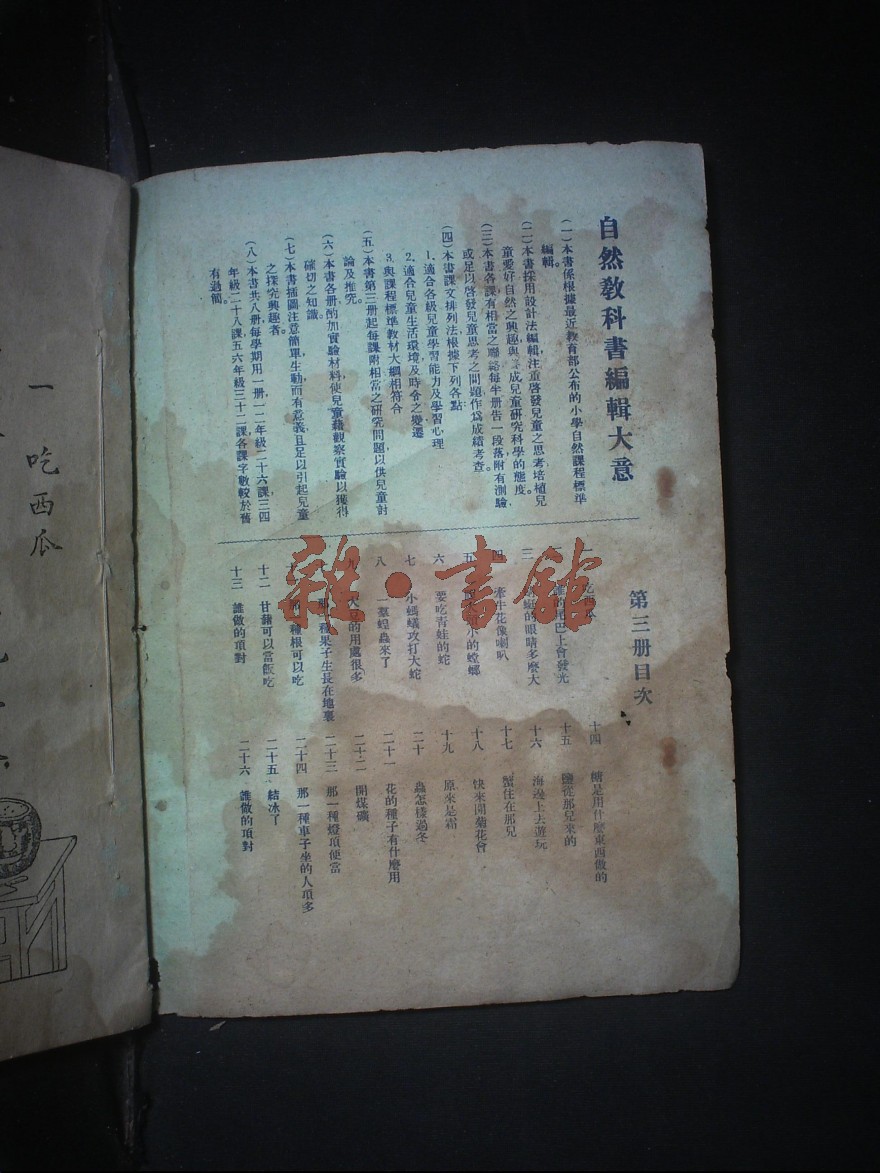 自然教科書編輯大意
(一)本書係根據最近教育部公布的小學自然課程標準
編輯。
(二)本書採用設計法編輯注重啓發兒童之思考培植兒
童愛好自然之興趣與養成兒童研究科學的態度。
(三)本書各課有相當之聯絡每半册告一段落附有測驗,
或足以啓發兒童思考之問題作爲成績考查。
(四)本書課文排列法根據下列各點:
1. 適合各級兒童學習能力及學習心理
2. 適合兒童生活環境及時令之變遷
3. 與課程標準教材大綱相符合
(五)本書第三册起每課附相當之研究問題以供兒童討
論及推究。
(六)本書各册酌加實驗材料使兒童藉觀察實驗以獲得
確切之知識。
(七)本書插圖注意簡單,生動,而有意義且足以引起兒童
之探究興趣者。
(八)本書共八册每學期用一册,一二年級二十六課,三四
年級二十八課,五六年級三十二課各課字數較於舊
有過簡。
第三册目次
一 吃西瓜
誰的尾巴上會發光
三 的眼睛多麼大
四 牽牛花像喇叭
五 小的螳螂
六 要吃青蛙的蛇
七 小螞蟻攻打大蛇
八 一羣蝗蟲來了
九 大豆的用處很多
那一種果子生長在地裏
那一種根可以吃
十二 甘藷可以當飯吃
十三 誰做的頂對
十四 糖是用什麼東西做的
十五 鹽從那兒來的
十六 海邊上去遊玩
十七 蟹住在那兒
十八 快來開菊花會
十九 原來是霜
二十 蟲怎樣過冬
二十一 花的種子有什麼用
二十二 開煤礦
二十三 那一種燈頂便當
二十四 那一種車子坐的人頂多
二十五 結冰了
二十六 誰做的頂對
雜·書館
一 吃西瓜